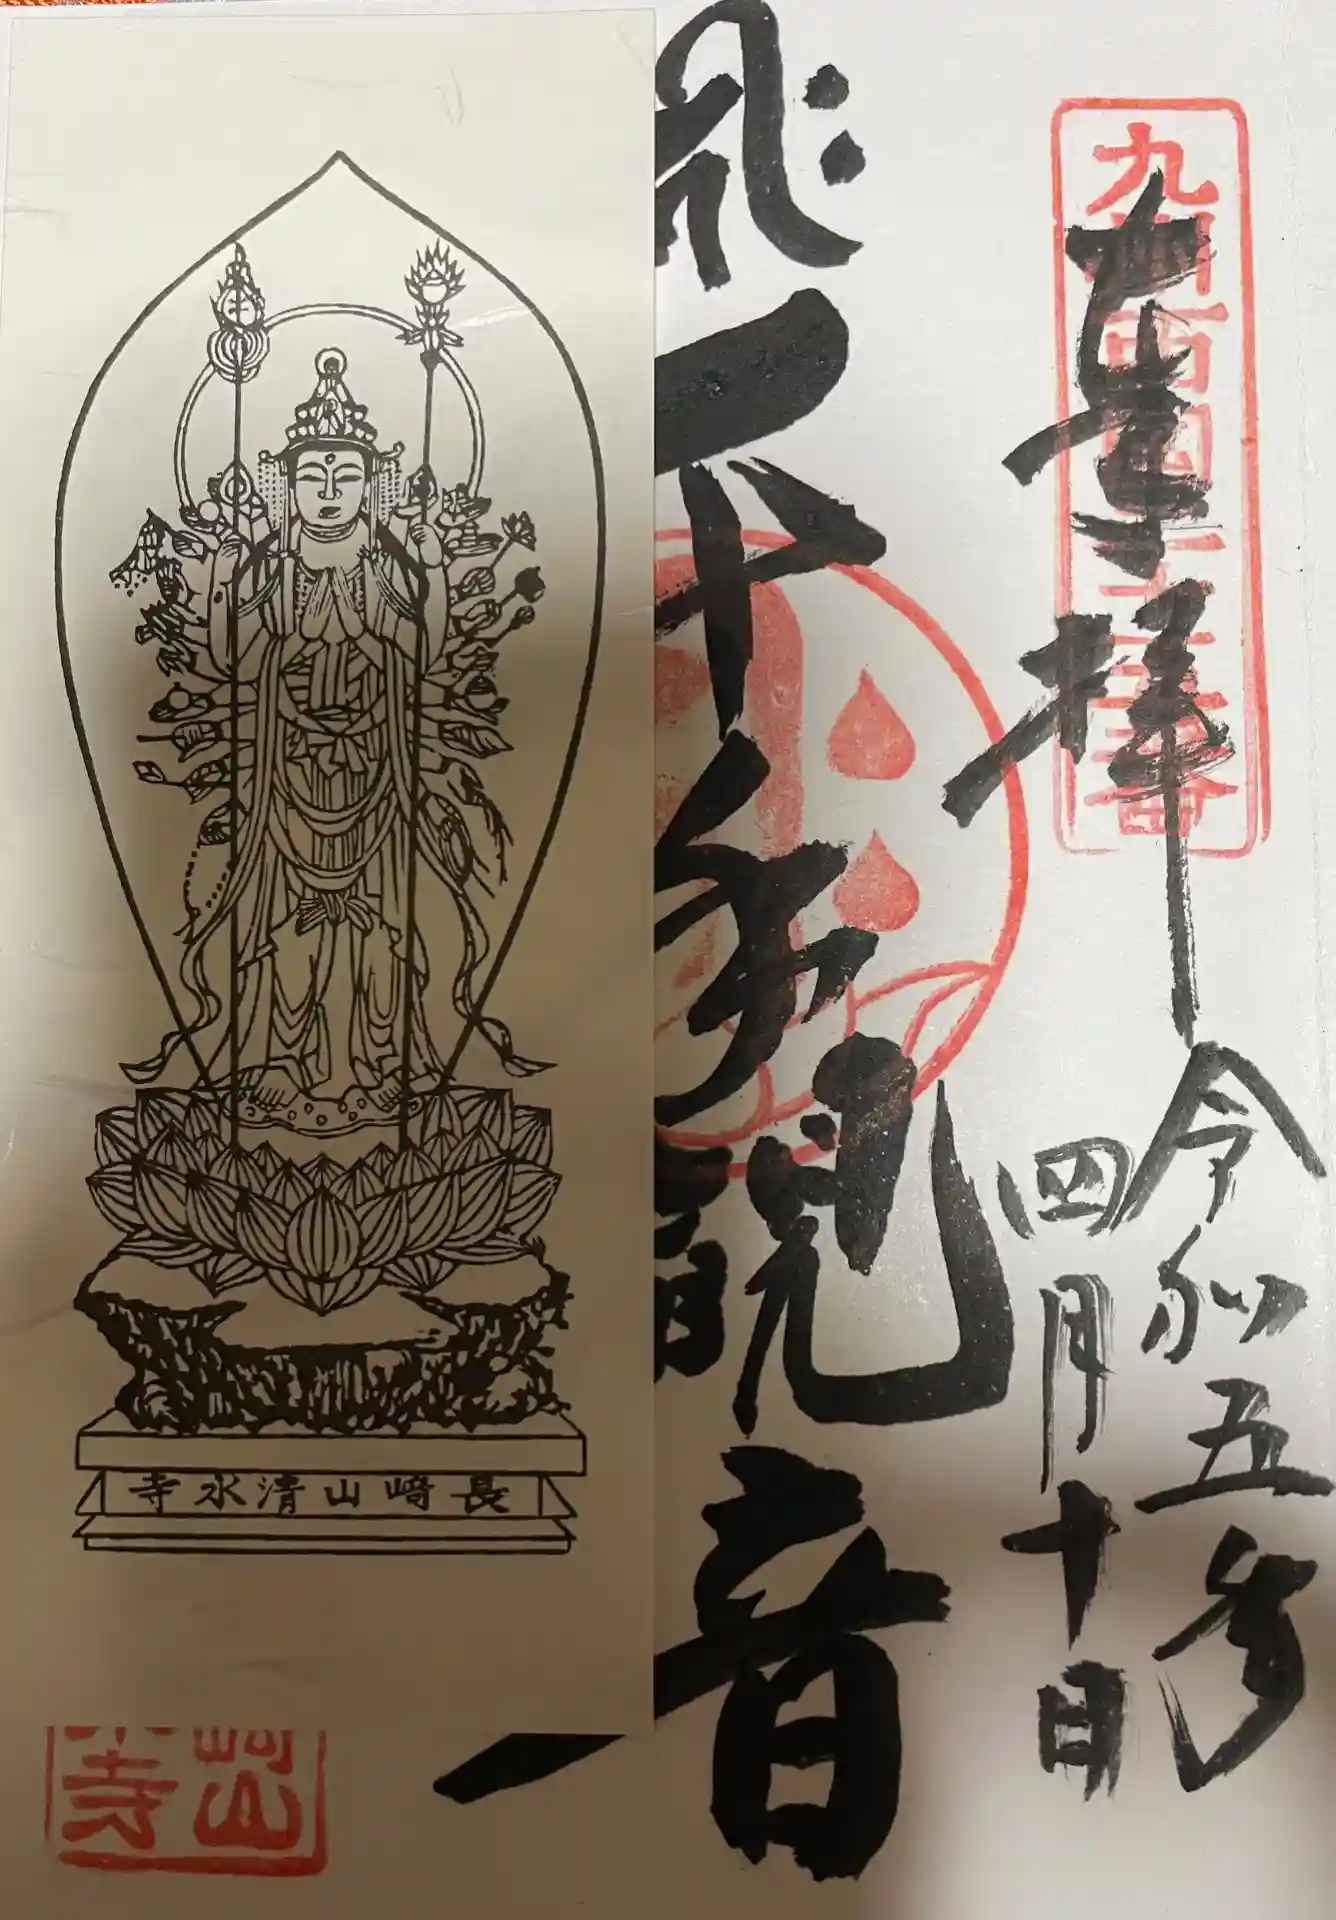 九州西国二十五番
奉拝
令和五年
四月十日
千手観音
長﨑山清水寺
山
寺